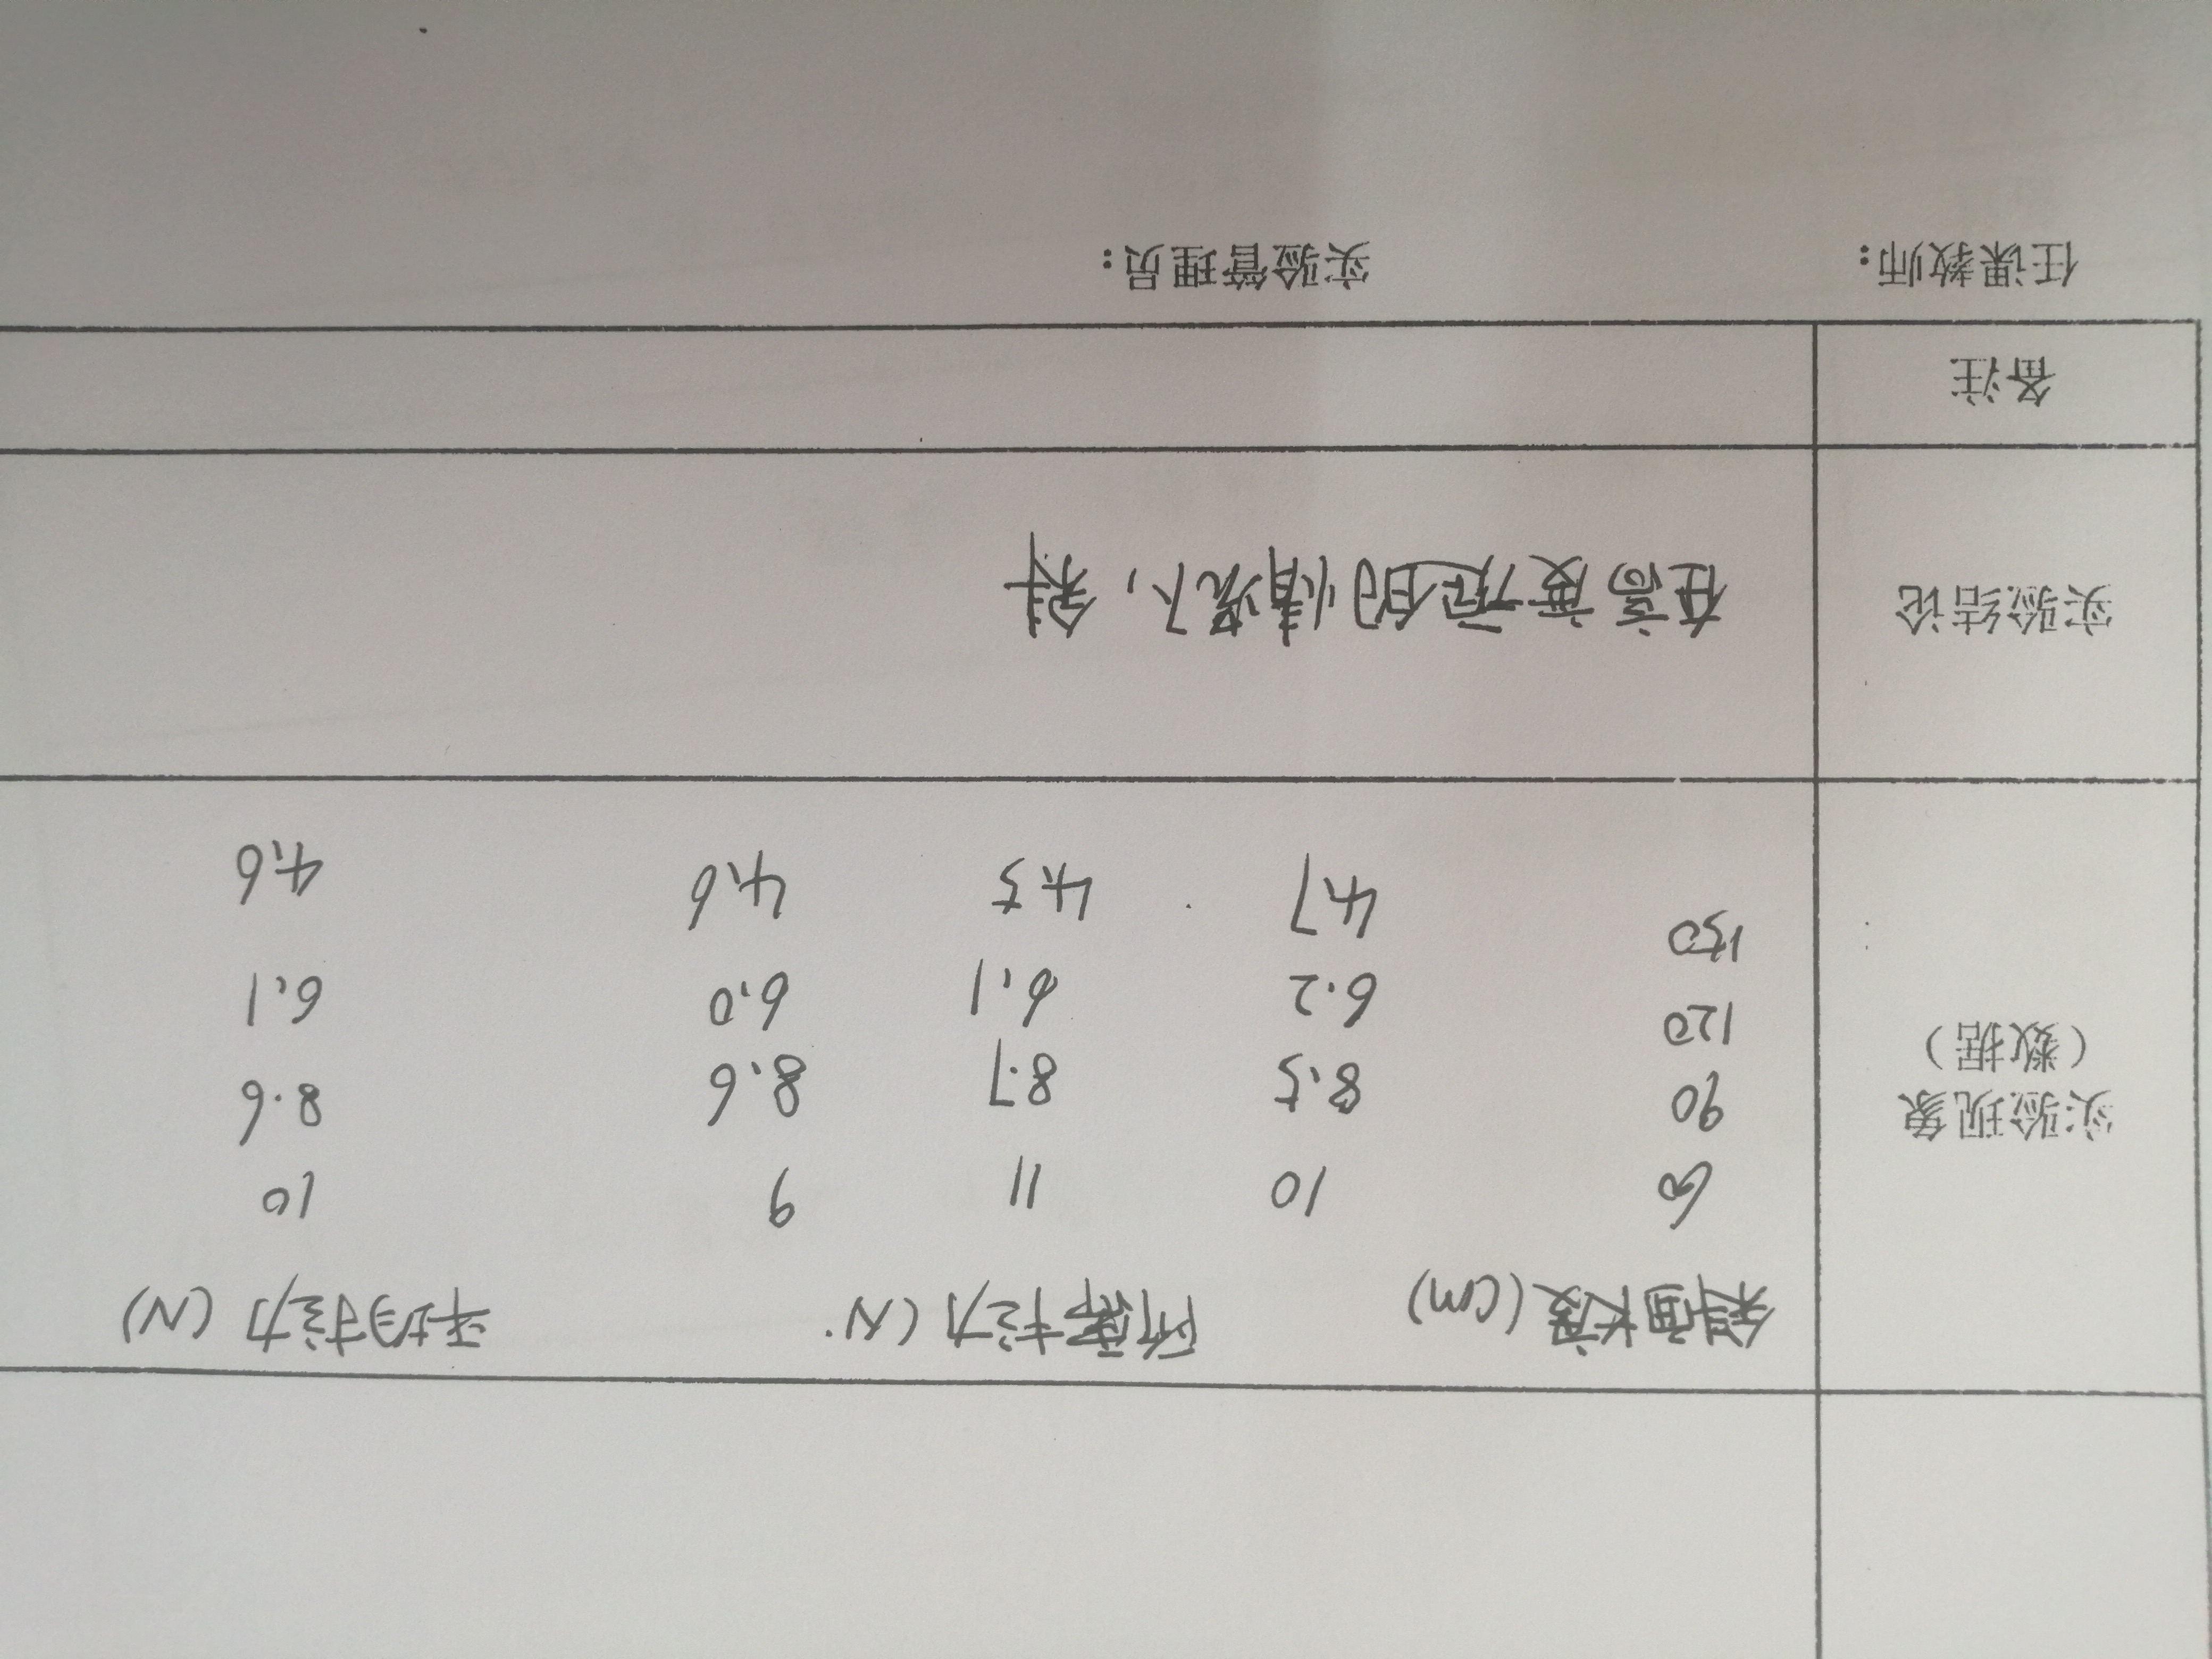 斜面长度(cm) 所需拉力(N). 平均拉力(N)
60 10 11 9 10
90 8.5 8.7 8.6 8.6
实验现象
(数据)
120 6.2 6.1 6.0 6.1
150 4.7 4.5 4.6 4.6
实验结论 在高度不变的情况下,斜
备注
任课教师: 实验管理员: